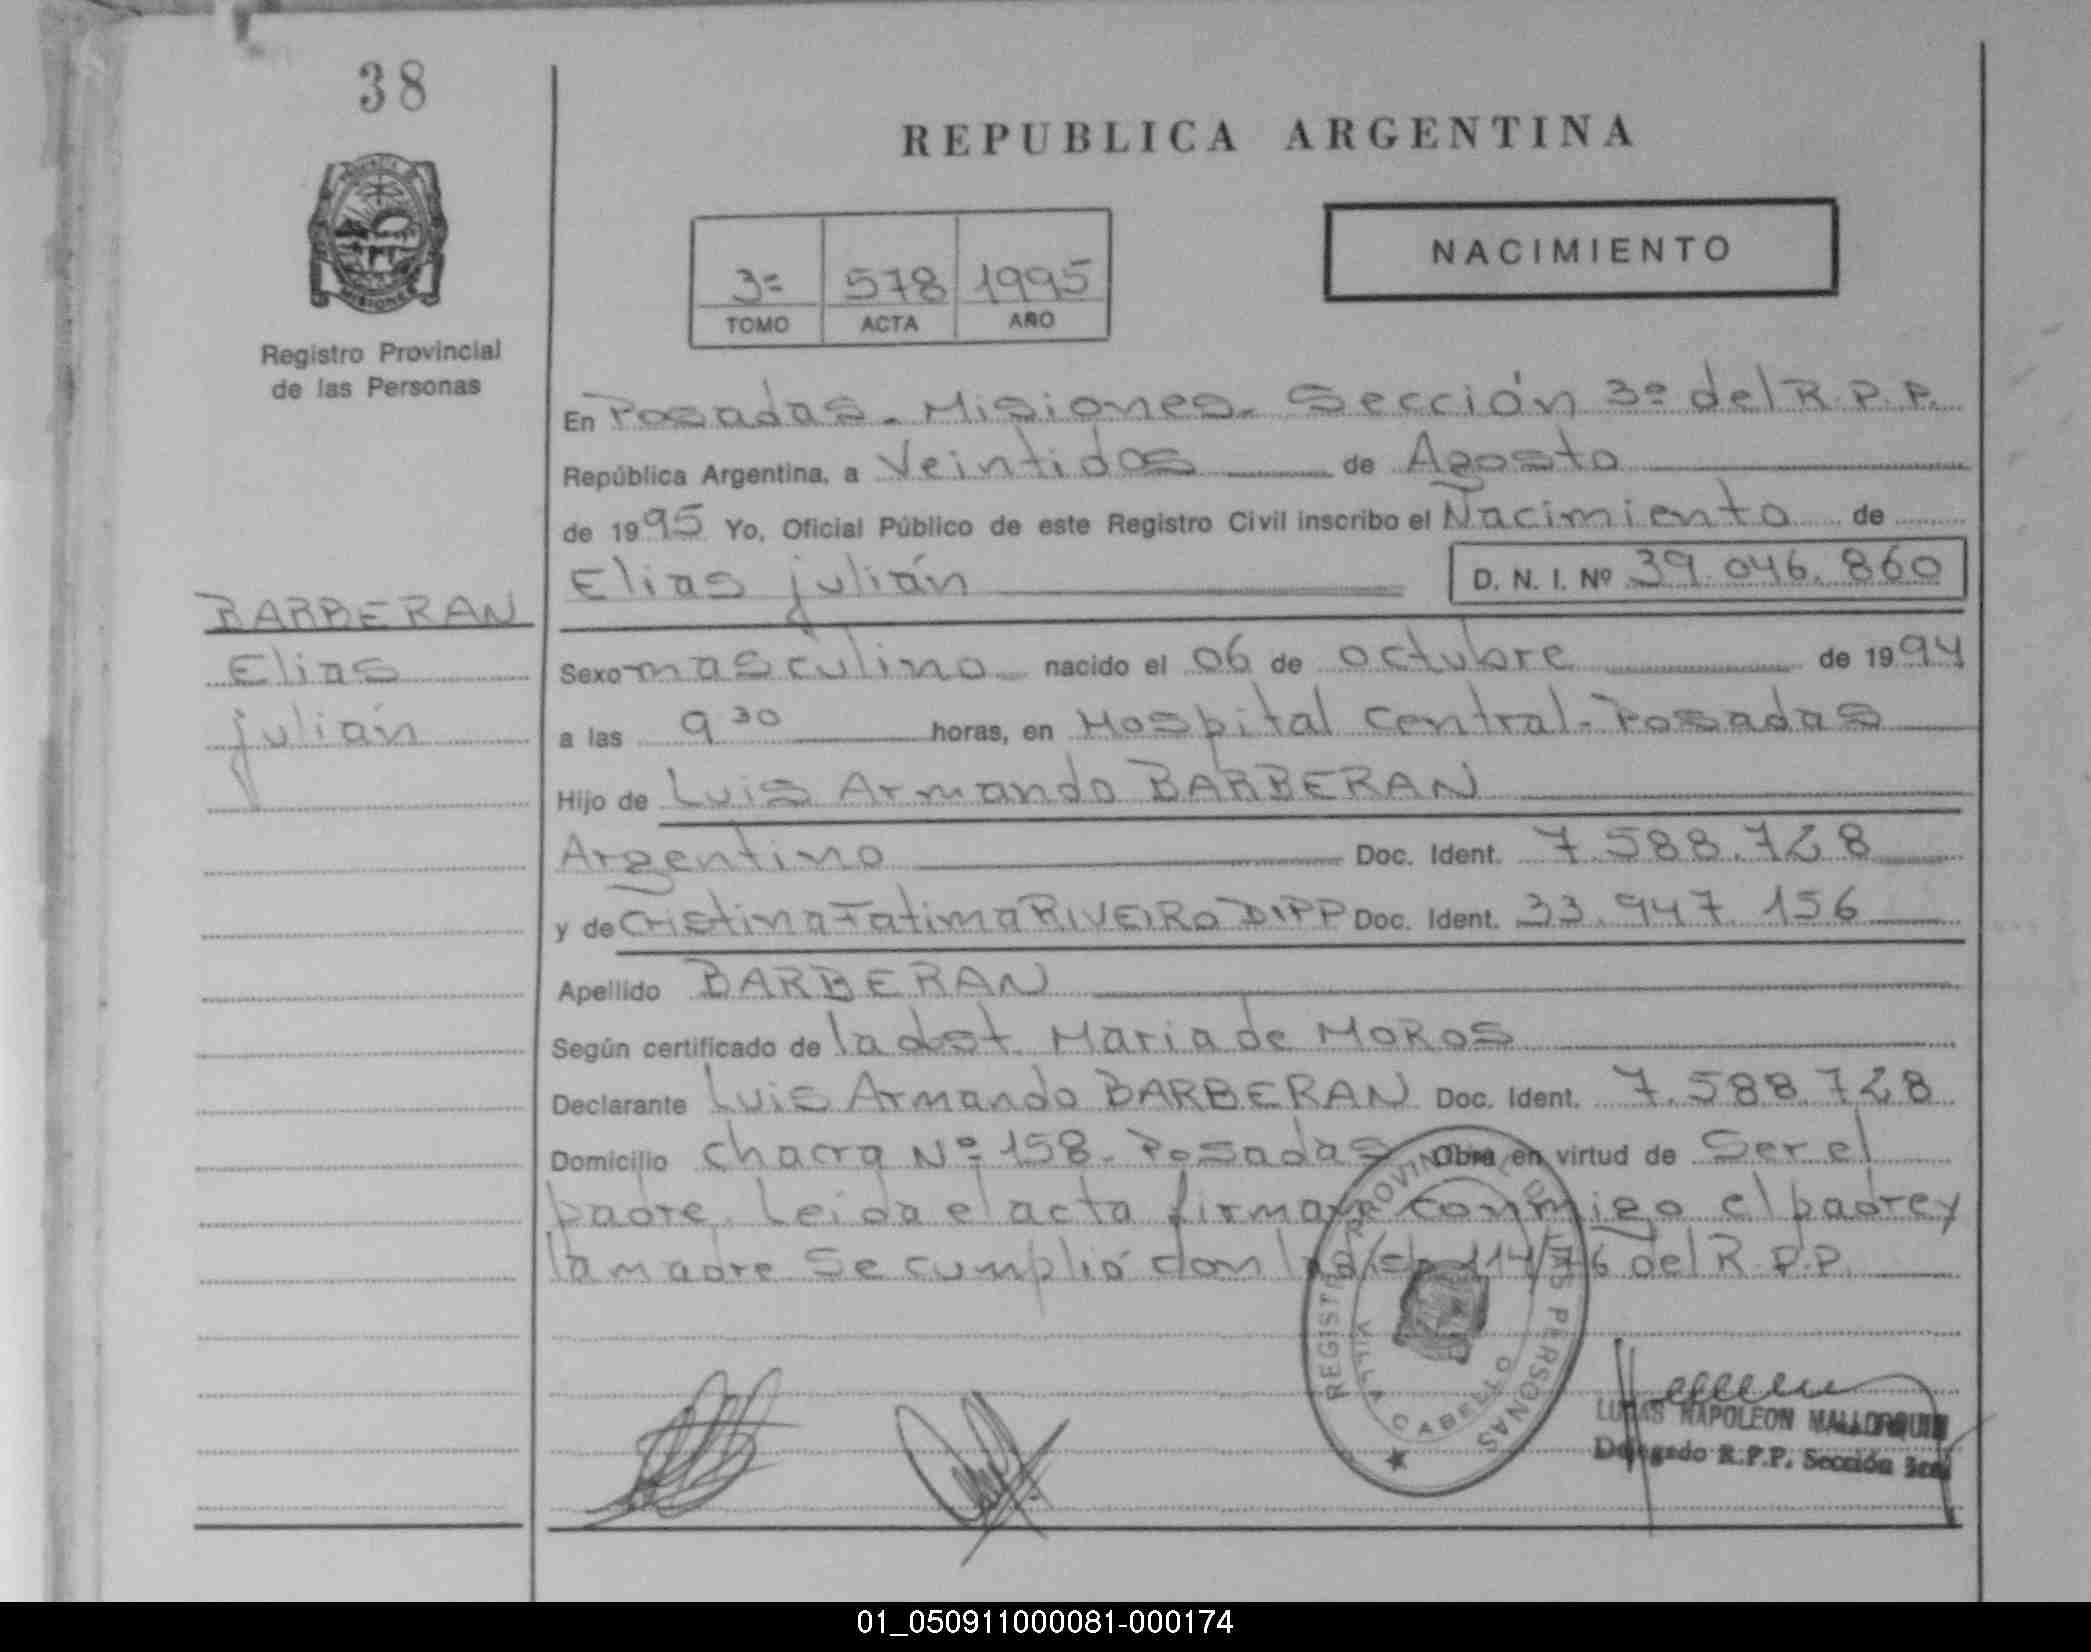 38
REPUBLICA ARGENTINA
NACIMIENTO
3ª 578 1995
TOMO ACTA AÑO
MISIONES
Registro Provincial
de las Personas
En Posadas - Misiones - Sección 3ª del R.P.P.
República Argentina, a Veintidos de Agosto
de 1995 Yo, Oficial Público de este Registro Civil inscribo el Nacimiento de
Elias Julián D. N. I. Nº 39.046.860
BARBERAN
Elias
Julián
Sexo masculino nacido el 06 de octubre de 1994
a las 9 30 horas, en Hospital Central - Posadas
Hijo de Luis Armando BARBERAN
Argentino Doc. Ident. 7.588.728
y de Cristina Fatima RIVEIRO DIPP Doc. Ident. 33.947.156
Apellido BARBERAN
Según certificado de la obst. Maria de MOROS
Declarante Luis Armando BARBERAN Doc. Ident. 7.588.728
Domicilio Chacra Nº 158 - Posadas Obra en virtud de Ser el
padre. Leida el acta firman conmigo el padre y
la madre Se cumplió con la 114/76 del R.P.P.
REGISTRO PROVINCIAL DE LAS PERSONAS
VILLA CABELLO
LUCAS NAPOLEON MALLORQUIN
Delegado R.P.P. Sección 3era
01_050911000081-000174